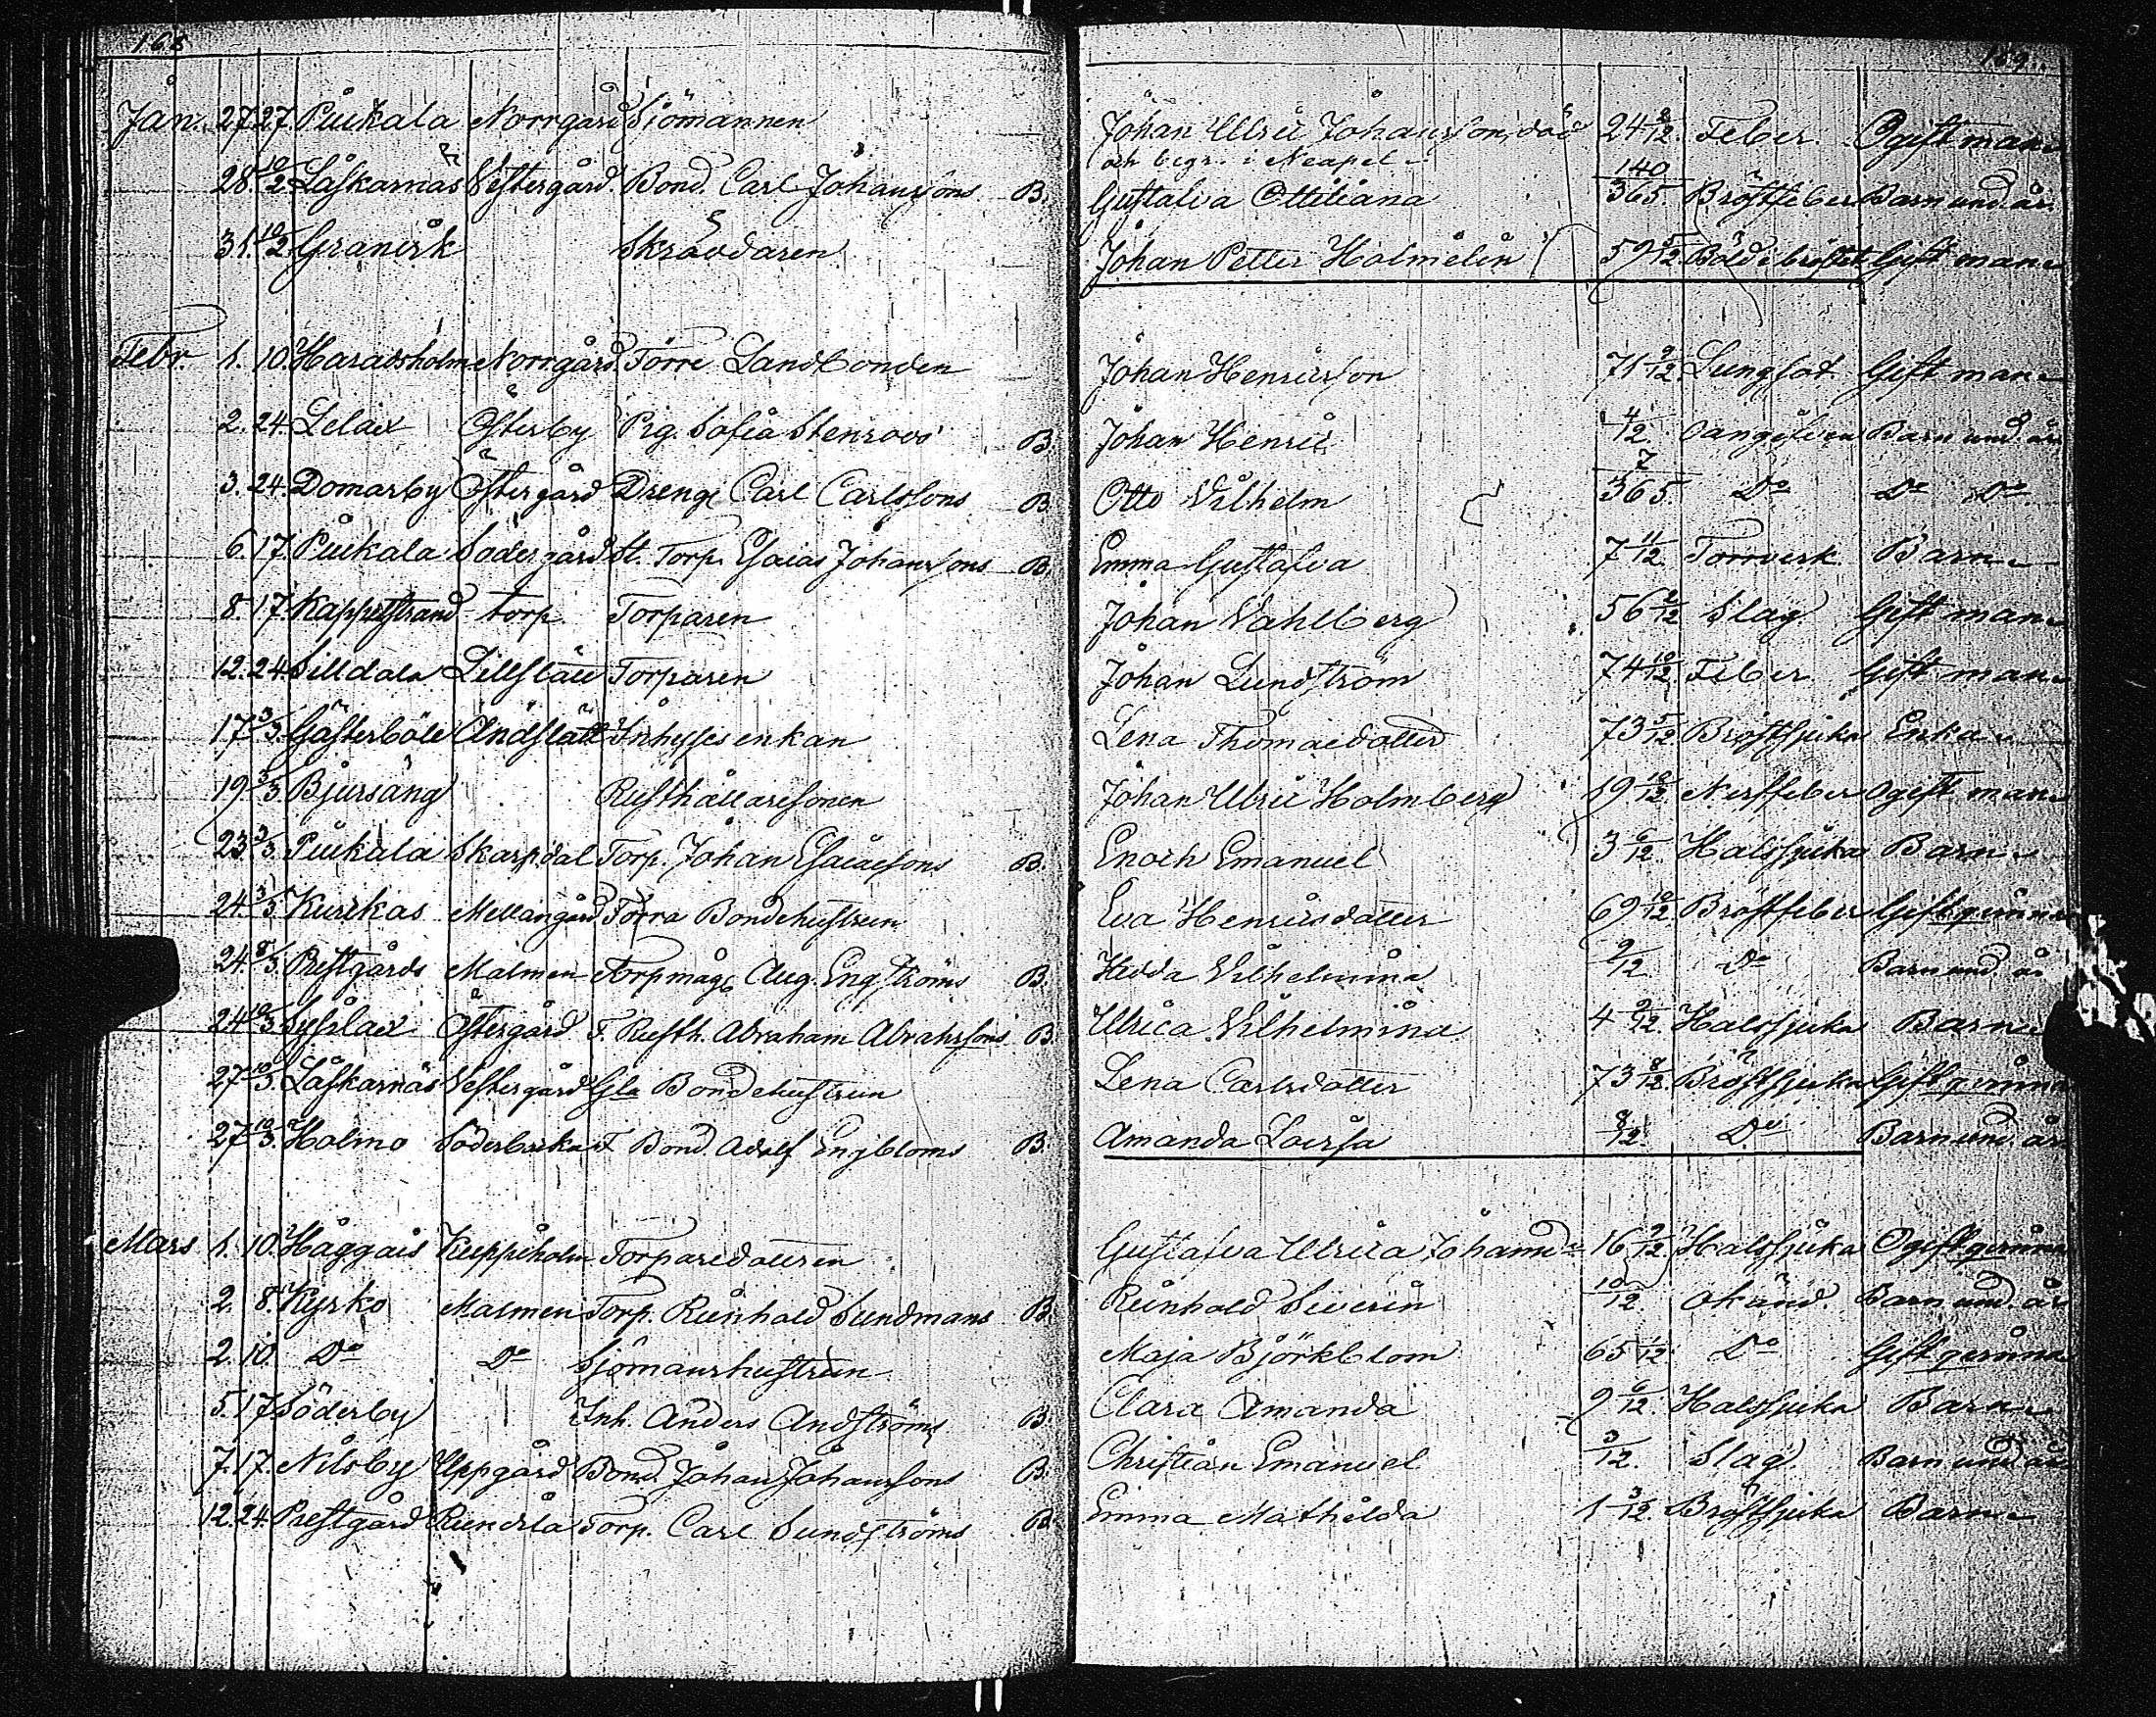 168
169.
Jan. 27. 27. Pückala Norrgård Sjömannen Johan Ulric Johansson, död 24 8/12. Feber. Ogift man
och begr. i Neapel
28. 10/2. Låskarnäs Vestergård. Bond. Carl Johanssons B. Gustafva Ottiliana 140/365 Bröstfeber Barn und. år.
31. 10/2. Skräddaren Johan Petter Holmelin 59 5/12. Böld i bröstet Gift man
Febr. 1. 10. Haraldsholm Norrgård. Förre Landbonden Johan Henricsson 71 9/12. Lungsot. Gift man
2. 24. Lelax Österby Pig. Sofia Stenroos B. Johan Henric 4/12. Oangifven Barn und. år
3. 24. Domarby Östergård Dreng Carl Carlssons B. Otto Vilhelm 7/365. Do Do Do
6. 17. Pückala Södergård St. Torp. Esaias Johanssons B. Emma Gustafva 7 11/12. Torrverk Barn
8. 17. Kappelstrand torp. Torparen Johan Vahlberg 56 2/12 Slag Gift man
12. 24. Silldala Torparen Johan Lundström 74 10/12. Feber Gift man
17. 3/3. Gästerböle Inhysesenkan Lena Thomaedotter 73 5/12. Bröstsjuka Enka
19. 3/3. Bjursäng Rusthållaresonen Johan Ulric Holmberg 19 10/12. Nerffeber Ogift man
23. 3/3. Pückala Skarpdal Torp. Johan Esaiaesons B. Enoch Emanuel 3 6/12. Halssjuka Barn
24. 3/3. Kurkas Mellangård. Förra Bondehustrun Eva Henricsdotter 69 10/12. Bröstfeber Gift qvinna
24. 8/3. Prestgårds Malmen Torpmåg Aug. Engströms B. Hedda Vilhelmina 2/12 Do Barn und. år
24. 10/3. Syslax Östergård F. Rusth. Abraham Abrahssons B. Ulrica Vilhelmina 4 9/12. Halssjuka Barn
27. 10/3. Låskarnäs Vestergård Gla Bondehustrun Lena Carlsdotter 73 8/12. Bröstsjuka Gift qvinna
27. 10/3. Holmo Söderbacka F Bond. Adolf Engbloms B. Amanda Lovisa 8/12. Do Barn und. år
Mars 1. 10. Häggais Kuppiholm Torparedottren Gustafva Ulrica Johansd. 16 9/12. Halssjuka Ogift qvinna
2. 8. Kyrko Malmen Torp. Reinhold Sundmans B. Reinhold Severin 10/12. Okänd. Barn und. år
2. 10. Do Do Sjömanshustrun Maja Björkblom 65 1/12. Do Gift qvinna
5. 17. Söderby Inh. Anders Andströms B. Clara Amanda 9 6/12. Halssjuka Barn
7. 17. Nilsby Uppgård Bond. Johan Johanssons B. Christian Emanuel 3/12. Slag Barn und. år
12. 24. Prestgård Rundila Torp. Carl Sundströms B. Emma Mathilda 1 3/12. Bröstsjuka Barn